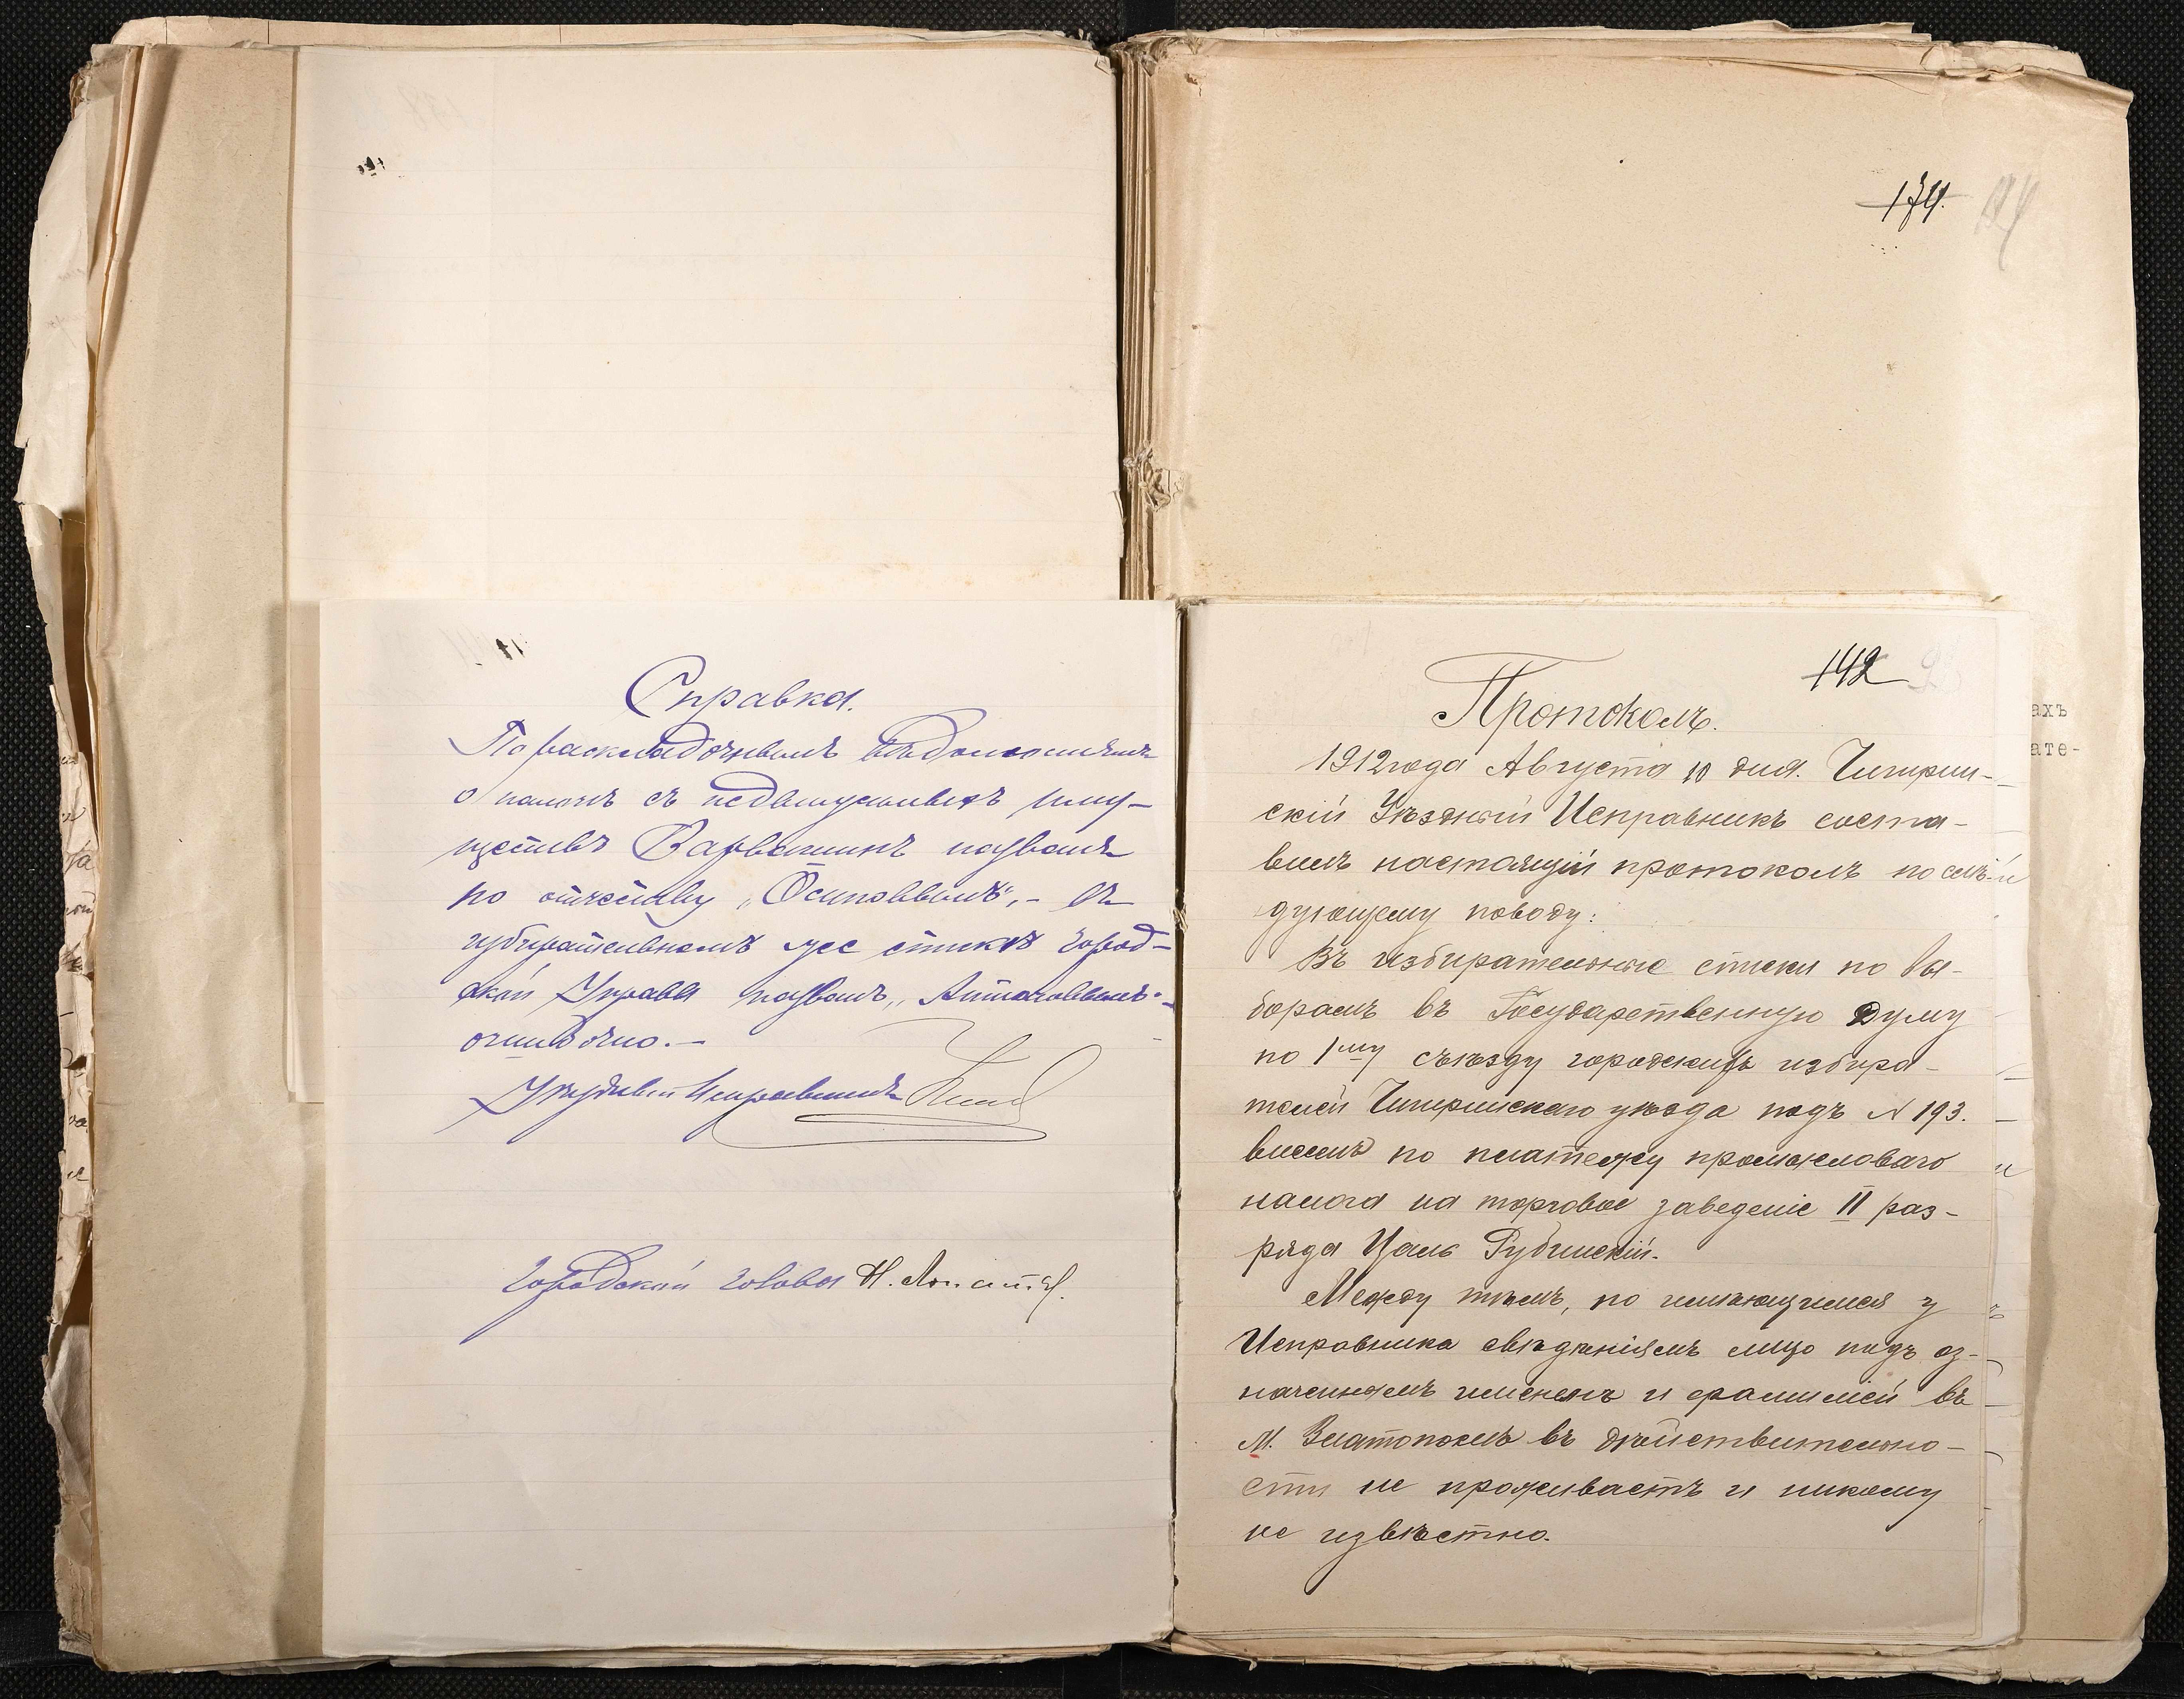 Справка.
По раскладочнымъ вѣдомостямъ
о налогѣ съ недвижимыхъ иму-
ществъ Варваринъ названъ
по отчеству „Осиповымъ“, - въ
избирательномъ же спискѣ город-
ской Управы названъ „Антоновымъ“-
ошибочно.-
Уѣздный Исправникъ
Городской голова Н. Лопатa
174.
142
Протоколъ.
1912 года Августа 10 дня. Чигирин-
скій Уѣздный Исправникъ соста-
вилъ настоящій протоколъ по слѣ-
дующему поводу:
Въ избирательные списки по вы-
борамъ въ Государственную Думу
по 1му съѣзду городскихъ избира-
телей Чигиринскаго уѣзда подъ N 193.
внесенъ по платежу промысловаго
налога на торговое заведеніе II раз-
ряда Цаль Рубинскій.
Между тѣмъ, по имѣющимся у
Исправника свѣдѣніямъ лицо подъ оз-
наченнымъ именемъ и фамиліей въ
М. Златополѣ въ дѣйствительно-
сти не проживаетъ и никому
не извѣстно.
ахъ
ате-